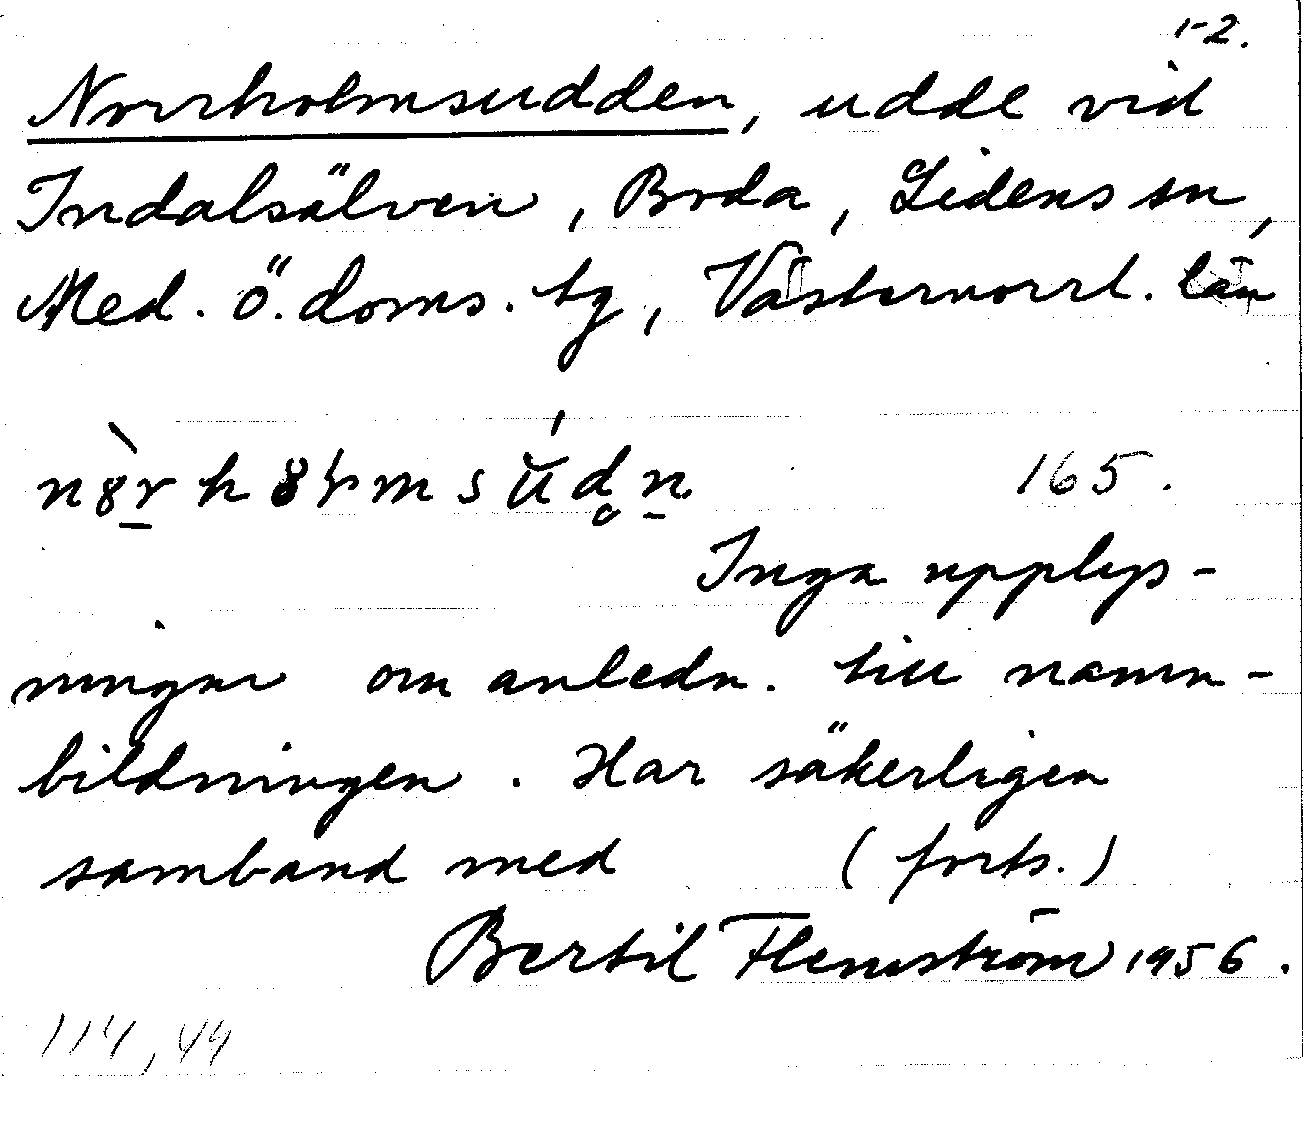 1-2.
Norrholmsudden, udde vid
Indalsälven, Boda, Lidens sn,
Med. ö. doms. tg, Västernorrl. län
165.
Inga upplys-
ningar om anledn. till namn-
bildningen. Har säkerligen
samband med (forts.)
Bertil Flemström 1956.
114, 44